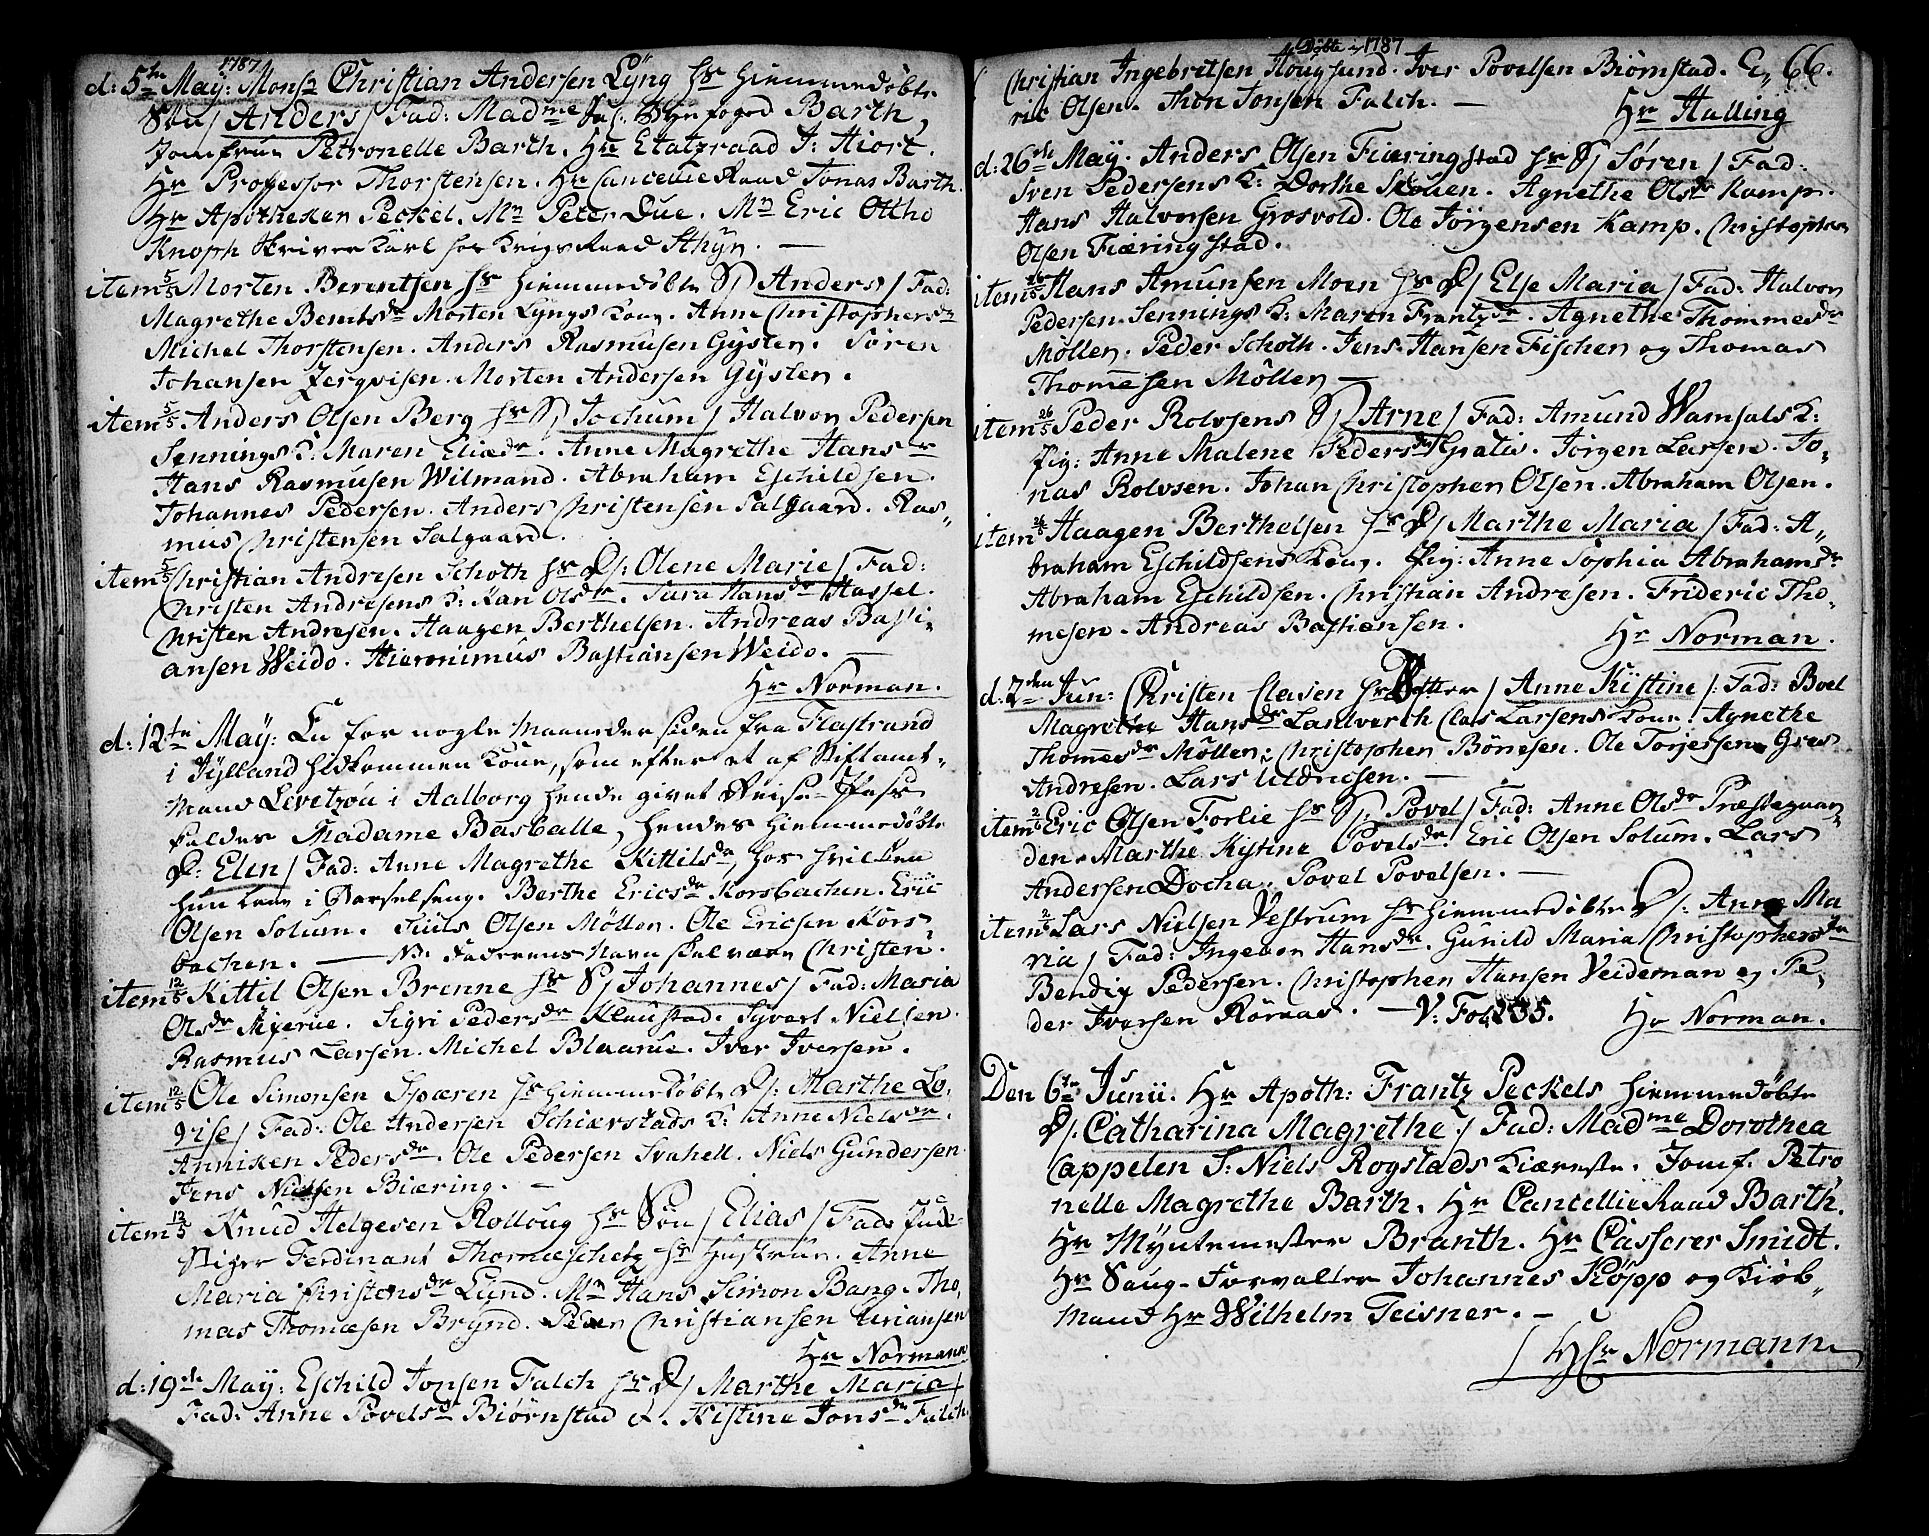 1787
d: 5te Maÿ: Monsr Christian Andersen Lÿng hs hiemmedøbte
Søn / Anders / Fad: Madme Sal. Barth,
Jomfrue Petronelle Barth. Hr Etatzraad J: Hiort.
Hr Professor Thorstensen. Hr CancellieRaad Jonas Barth.
Hr Apotheker Peckel. Mr Peter Due. Mr Eric Otho
Knoph Skriver Karl hos KrigsRaad Sthÿr. —
item 5/5 Morten Berentsen hs hiemmedøbte S / Anders / Fad:
Magrethe Berntsdr Morten Lÿngs Kone. Anne Christophersdr
Michel Thorstensen. Anders Rasmusen Gÿsler. Søren
Johansen Zergvisen. Morten Andersen Gÿsler.
item 5/5 Anders Olsen Berg hs S / Jochum / Halvor Pedersen
Sennings K. Maren Eliædr. Anne Magrethe Hansdr
Hans Rasmusen Wilmand. Abraham Eschildsen.
Johannes Pedersen. Anders Christensen Salgaard. Ras„
mus Christensen Salgaard.
item 5/5 Christian Andresen Schoth hs D /: Olene Marie / Fad:
Christen Andresens K: Kari Olsdr. Sara Hansdr Hassel.
Christen Andresen. Haagen Berthelsen. Andreas Basti„
ansen Weido. Hieronimus Bastiansen Weido. —
Hr Norman.
d: 12te Maÿ: En for nogle Maaneder siden fra Flastrand
i Jÿlland hidkommen Kone, som efter et af Stiftamt„
mand Levetzou i Aalborg hende givet Reise-Pas
kaldes Madame Basballe, hendes hiemmedøbte
D: Elen / Fad: Anne Magrethe Kittilsdr, hos hvilken
hun laae i Barselseng. Berthe Ericsdr Korsbachen. Eric
Olsen Solum. Siuls Olsen Møllen. Ole Ericsen Kors„
bachen. — NB. Faderens Navn skal være Christen.
item 12/5 Kittil Olsen Brenne hs S / Johannes / Fad: Maria
Olsdr Mÿrene. Sigri Pedersdr Klaustad. Sÿvert Nielsen.
Rasmus Larsen. Michel Blaarue. Iver Iversen.
item 12/5 Ole Simonsen Spæren hs hiemmedøbte D /: Marthe Lo„
vise / Fad: Ole Andersen Schierstads K: Anne Nielsdr.
Anniken Pedersdr. Ole Pedersen Svahell. Niels Gundersen
Jens Nielsen Biæring. —
item 12/5 Knud Helgesen Rolloug hs Søn / Elias / Fad:
Stiger Ferdinant Thomæschetz hs Hustrue. Anne
Maria Christensdr Lund. Mr Hans Simon Bang. Tho„
mas Thomæsen Brÿnd. Peder Christiansen Uriansen
Hr Normann
d: 19de Maÿ: Eschild Jonsen Falch hs D / Marthe Maria /
Fad: Anne Povelsdr Biørnstad &. Kistine Jonsdr Falch.
Døbte i 1787
66.
Christian Ingebretsen Hougsund. Iver Povelsen Biørnstad. E„
ric Olsen. Thor Jonsen Falch. —
Hr Halling
d: 26de Maÿ. Anders Olsen Fiæringstad hs S / Søren / Fad:
Sven Pedersens K: Dorthe Skouen. Agnethe Olsdr Kamp.
Hans Halvorsen Grosvold. Ole Jørgensen Kamp. Christopher
Olsen Fiæringstad.
item 26/5 Hans Amunsen Moen hs D / Else Maria / Fad: Halvor
Pedersen Sennings K: Maren Frantzdr. Agnethe Thommesdr
Møllen. Peder Schoth. Jens Hansen Fischer og Thomas
Thomesen Møllen —
item 26/5 Peder Rolvsens S / Arne / Fad: Amund Wamsals K:
Pig: Anne Malene Pedersdr Gratis. Jørgen Larsen. Jo„
nas Rolvsen. Johan Christopher Olsen. Abraham Olsen.
item 26/5 Haagen Berthelsen hs D / Marthe Maria / Fad: A„
braham Eschildsens Kone. Pig: Anne Sophia Abrahamsdr
Abraham Eschildsen. Christian Andresen. Frideric Tho„
mesen. Andreas Bastiansen.
Hr Norman.
d. 2den Jun: Christen Clasen hs Datter / Anne Kistine /: Fad: Boel
Magrethe Hansdr Landverch Clas Larsens Kone. Agnethe
Thomesdr Møllen. Christopher Bønesen. Ole Torjersen. Gres
Andresen. Lars Uldricsen. —
item 2/6 Eric Olsen Forlie hs S /: Povel / Fad: Anne Olsdr Præstegaar„
den. Marthe Kistine Povelsdr. Eric Olsen Solum. Lars
Andersen Docha. Povel Povelsen. —
item 2/6 Lars Nielsen Vestrum hs hiemmedøbte D /: Anne Ma
ria / Fad: Ingebor Hansdr. Gunild Maria Christophersdr
Bendix Pedersen. Christopher Hansen Veideman og Pe„
der Iversen Røraas. — V: Fol: 235. Hr Norman.
Den 6te Junii. Hr Apoth: Frantz Peckels hiemmedøbte
D /. Catharina Magrethe / Fad: Madme Dorothea
Cappelen S: Niels Rogstads Kiæreste. Jomf. Petro
nelle Magrethe Barth. Hr CancellieRaad Barth.
Hr Mÿntemester Branth. Hr Casserer Smidt.
Hr Saug-Forvalter Johannes Kôpp og Kiøb„
mand Hr Wilhelm Teisner. —
/ Hr Normann